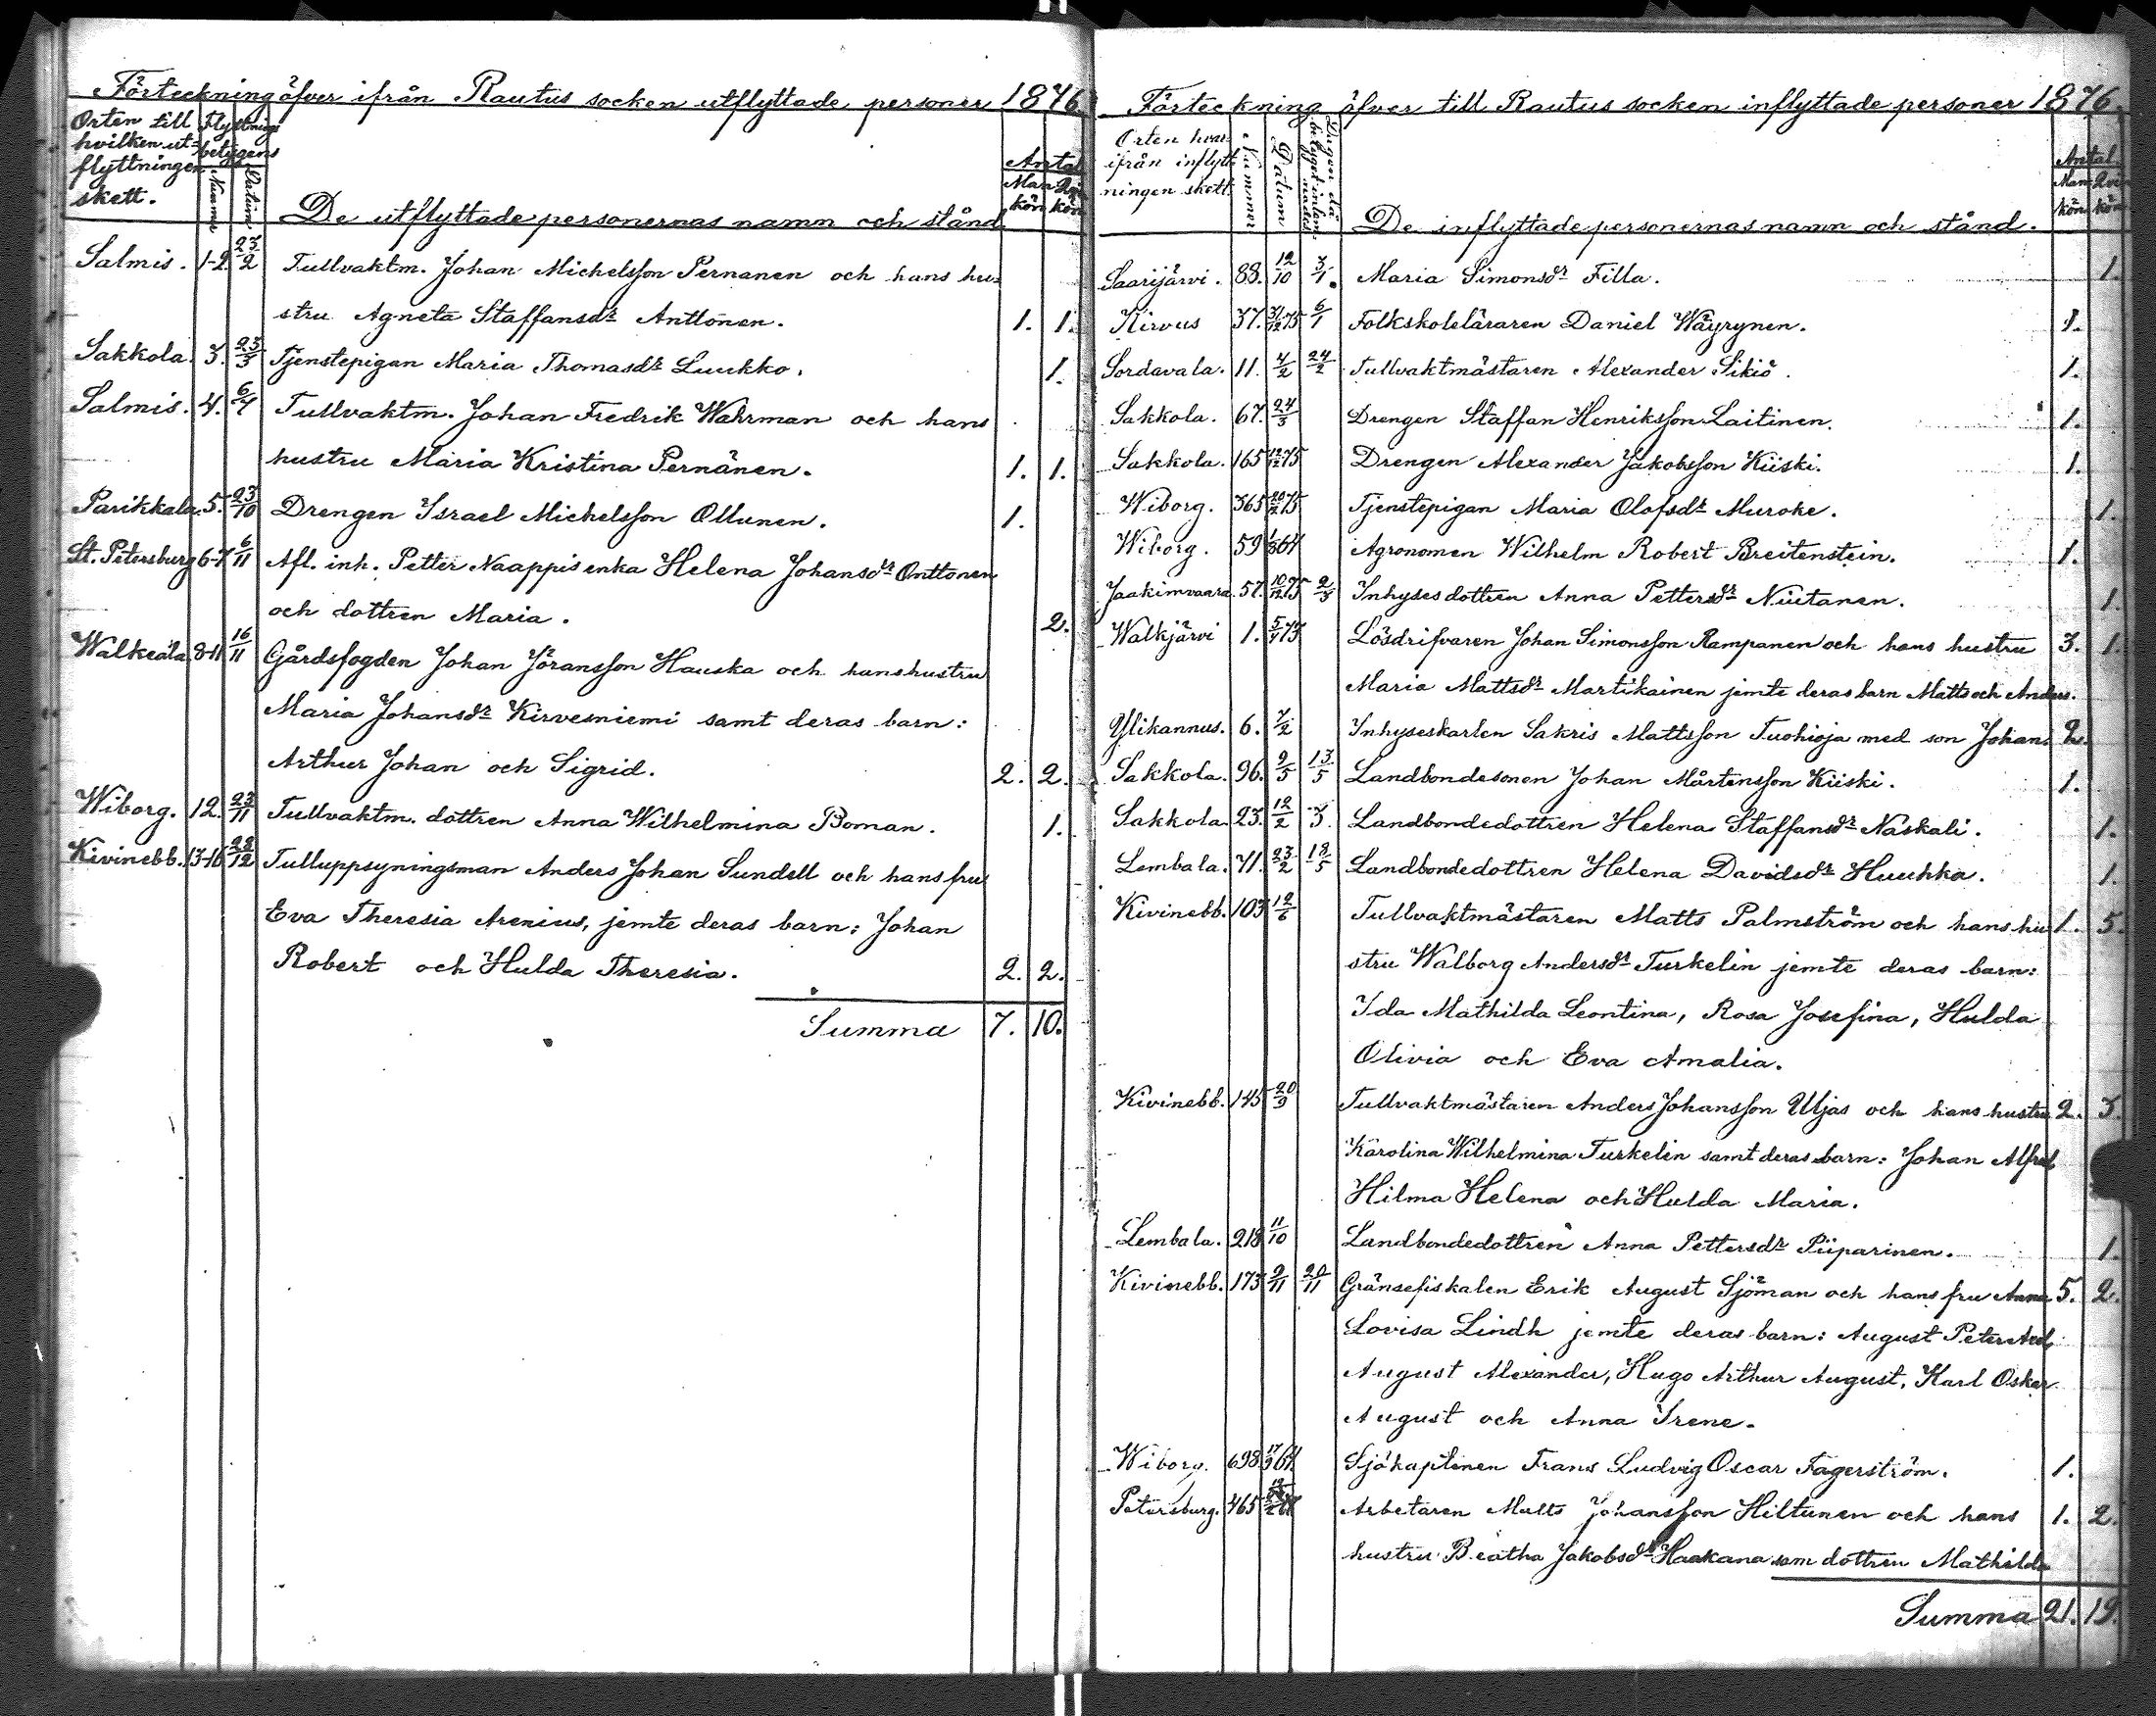 Förteckning öfver ifrån Rautus socken utflyttade personer 1876
Orten till hvilken utflyttningen skett. Flyttnings betygens Nummer Datum De utflyttade personernas namn och stånd Antal Mankön Qvinkön
Salmis. 1-2. 23/2 Tullvaktm. Johan Michelsson Pernanen och hans hu-
stru Agneta Staffansdr Anttonen. 1. 1.
Sakkola. 3. 23/3 Tjenstepigan Maria Thomasdr Luukko. 1.
Salmis. 4. 6/4 Tullvaktm. Johan Fredrik Wahrman och hans
hustru Maria Kristina Pernänen. 1. 1.
Parikkala. 5. 23/10 Drengen Israel Michelsson Ollunen. 1.
St. Petersburg 6-7 6/11 Afl. inh. Petter Naappis enka Helena Johansdr Onttonen
och dottren Maria. 2.
Walkeala 8-11 16/11 Gårdsfogden Johan Jöransson Hauska och hans hustru
Maria Johansdr Kirvesniemi samt deras barn:
Arthur Johan och Sigrid. 2. 2.
Wiborg. 12. 23/11 Tullvaktm. dottren Anna Wilhelmina Boman. 1.
Kivinebb. 13-16 22/12 Tulluppsyningsman Anders Johan Sundell och hans fru
Eva Theresia Arenius, jemte deras barn: Johan
Robert och Hulda Theresia. 2. 2.
Summa 7. 10.
Förteckning öfver till Rautus socken inflyttade personer 1876.
Orten hvarifrån inflyttningen skett. Nummer Datum Dagen då betyget inlemnades De inflyttade personernas namn och stånd. Antal. Mankön Qvinkön
Saarijärvi. 88. 12/10 3/1. Maria Simonsdr Filla. 1.
Kirvus 37. 31/12 75 6/1 Folkskoleläraren Daniel Wäyrynen. 1.
Sordavala. 11. 4/2 24/2 Tullvaktmästaren Alexander Sikiö. 1.
Sakkola. 67. 24/3 Drengen Staffan Henriksson Laitinen. 1.
Sakkola. 165 75 Drengen Alexander Jakobsson Kiiski. 1.
Wiborg. 365 75 Tjenstepigan Maria Olofsdr Muroke. 1.
Wiborg. 59 64 Agronomen Wilhelm Robert Breitenstein. 1.
Jaakimvaara 57. 10/12 75 2/3 Inhyses dottren Anna Pettersdr Niutanen. 1.
Walkjärvi 1. 75 Lösdrifvaren Johan Simonsson Rampanen och hans hustru 3. 1.
Maria Mattsdr Martikainen jemte deras barn Matts och Anders.
Ylikannus. 6. 7/2 Inhyseskarlen Sakris Mattsson Tuohioja med son Johan 2.
Sakkola. 96. 9/5 13/5 Landbondesonen Johan Mårtensson Kiiski. 1.
Sakkola 23. 12/2 3. Landbondedottren Helena Staffansdr Näskali. 1.
Lembala. 71. 23/2 18/5 Landbondedottren Helena Davidsdr Huuhka. 1.
Kivinebb. 103 12/6 Tullvaktmästaren Matts Palmström och hans hu- 1. 5.
stru Walborg Andersdr Turkelin jemte deras barn:
Ida Mathilda Leontina, Rosa Josefina, Hulda
Olivia och Eva Amalia.
Kivinebb. 145 20/9 Tullvaktmästaren Anders Johansson Uljas och hans hustru 2. 3.
Karolina Wilhelmina Turkelin samt deras barn: Johan Alfred
Hilma Helena och Hulda Maria.
Lembala. 218 11/10 Landbondedottren Anna Pettersdr Piiparinen. 1.
Kivinebb. 173 9/11 20/11 Gränsefiskalen Erik August Sjöman och hans fru Anna 5. 2.
Lovisa Lindh jemte deras barn: August Peter Axel,
August Alexander, Hugo Arthur August, Karl Oskar
August och Anna Irene.
Wiborg. 698 17/9 64 Sjökaptenen Frans Ludvig Oscar Fagerström. 1.
Petersburg. 465 Arbetaren Matts Johansson Hiltunen och hans 1. 2.
hustru Beatha Jakobsdr Haakana som dottren Mathilda
Summa 21. 19.